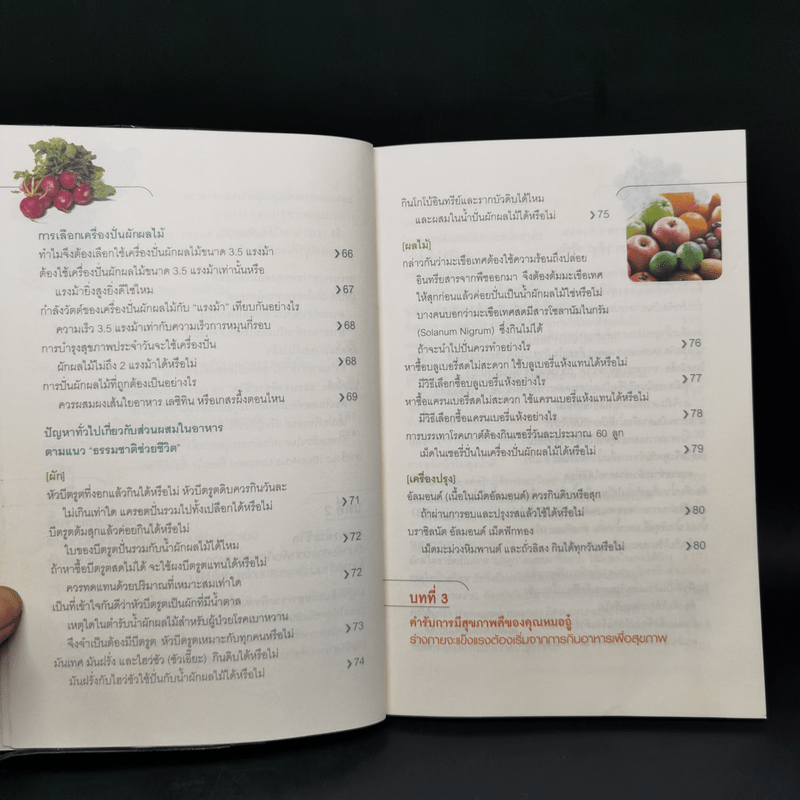 การเลือกเครื่องปั่นผักผลไม้
ทำไมจึงต้องเลือกใช้เครื่องปั่นผักผลไม้ขนาด 3.5 แรงม้า ❯66
ต้องใช้เครื่องปั่นผักผลไม้ขนาด 3.5 แรงม้าเท่านั้นหรือ
แรงม้ายิ่งสูงยิ่งดีใช่ไหม ❯67
กำลังวัตต์ของเครื่องปั่นผักผลไม้กับ "แรงม้า" เทียบกันอย่างไร
ความเร็ว 3.5 แรงม้าเท่ากับความเร็วการหมุนกี่รอบ ❯68
การบำรุงสุขภาพประจำวันจะใช้เครื่องปั่น
ผักผลไม้ไม่ถึง 2 แรงม้าได้หรือไม่ ❯68
การปั่นผักผลไม้ที่ถูกต้องเป็นอย่างไร
ควรผสมผงเส้นใยอาหาร เลซิทิน หรือเกสรผึ้งตอนไหน ❯69
ปัญหาทั่วไปเกี่ยวกับส่วนผสมในอาหาร
ตามแนว "ธรรมชาติช่วยชีวิต"
[ผัก]
หัวบีตรูตที่งอกแล้วกินได้หรือไม่ หัวบีตรูตดิบควรกินวันละ
ไม่เกินเท่าใด แครอตปั่นรวมไปทั้งเปลือกได้หรือไม่ ❯71
บีตรูตต้มสุกแล้วค่อยกินได้หรือไม่
ใบของบีตรูตปั่นรวมกับน้ำผักผลไม้ได้ไหม ❯72
ถ้าหาซื้อบีตรูตสดไม่ได้ จะใช้ผงบีตรูตแทนได้หรือไม่
ควรทดแทนด้วยปริมาณที่เหมาะสมเท่าใด ❯72
เป็นที่เข้าใจกันดีว่าหัวบีตรูตเป็นผักที่มีน้ำตาล
เหตุใดในตำรับน้ำผักผลไม้สำหรับผู้ป่วยโรคเบาหวาน
จึงจำเป็นต้องมีบีตรูต หัวบีตรูตเหมาะกับทุกคนหรือไม่ ❯73
มันเทศ มันฝรั่ง และไหว่ซัว (ซัวเอี๊ยะ) กินดิบได้หรือไม่
มันฝรั่งกับไหว่ซัวใช้ปั่นกับน้ำผักผลไม้ได้หรือไม่ ❯74
กินโกโบ้อินทรีย์และรากบัวดิบได้ไหม
และผสมในน้ำปั่นผักผลไม้ได้หรือไม่ ❯75
[ผลไม้]
กล่าวกันว่ามะเขือเทศต้องใช้ความร้อนถึงปล่อย
อินทรียสารจากพืชออกมา จึงต้องต้มมะเขือเทศ
ให้สุกก่อนแล้วค่อยปั่นเป็นน้ำผักผลไม้ใช่หรือไม่
บางคนบอกว่ามะเขือเทศสดมีสารโซลานัมไนกรัม
(Solanum Nigrum) ซึ่งกินไม่ได้
ถ้าจะนำไปปั่นควรทำอย่างไร ❯76
หาซื้อบลูเบอรี่สดไม่สะดวก ใช้บลูเบอรี่แห้งแทนได้หรือไม่
มีวิธีเลือกซื้อบลูเบอรี่แห้งอย่างไร ❯77
หาซื้อแครนเบอรี่สดไม่สะดวก ใช้แครนเบอรี่แห้งแทนได้หรือไม่
มีวิธีเลือกซื้อแครนเบอรี่แห้งอย่างไร ❯78
การบรรเทาโรคเกาต์ต้องกินเชอรี่วันละประมาณ 60 ลูก
เม็ดในเชอรี่ปั่นในเครื่องปั่นผักผลไม้ได้หรือไม่ ❯79
[เครื่องปรุง]
อัลมอนด์ (เนื้อในเม็ดอัลมอนด์) ควรกินดิบหรือสุก
ถ้าผ่านการอบและปรุงรสแล้วใช้ได้หรือไม่ ❯80
บราซิลนัต อัลมอนด์ เม็ดฟักทอง
เม็ดมะม่วงหิมพานต์ และถั่วลิสง กินได้ทุกวันหรือไม่ ❯80
บทที่ 3
ตำรับการมีสุขภาพดีของคุณหมออู๋
ร่างกายจะแข็งแรงต้องเริ่มจากการกินอาหารเพื่อสุขภาพ